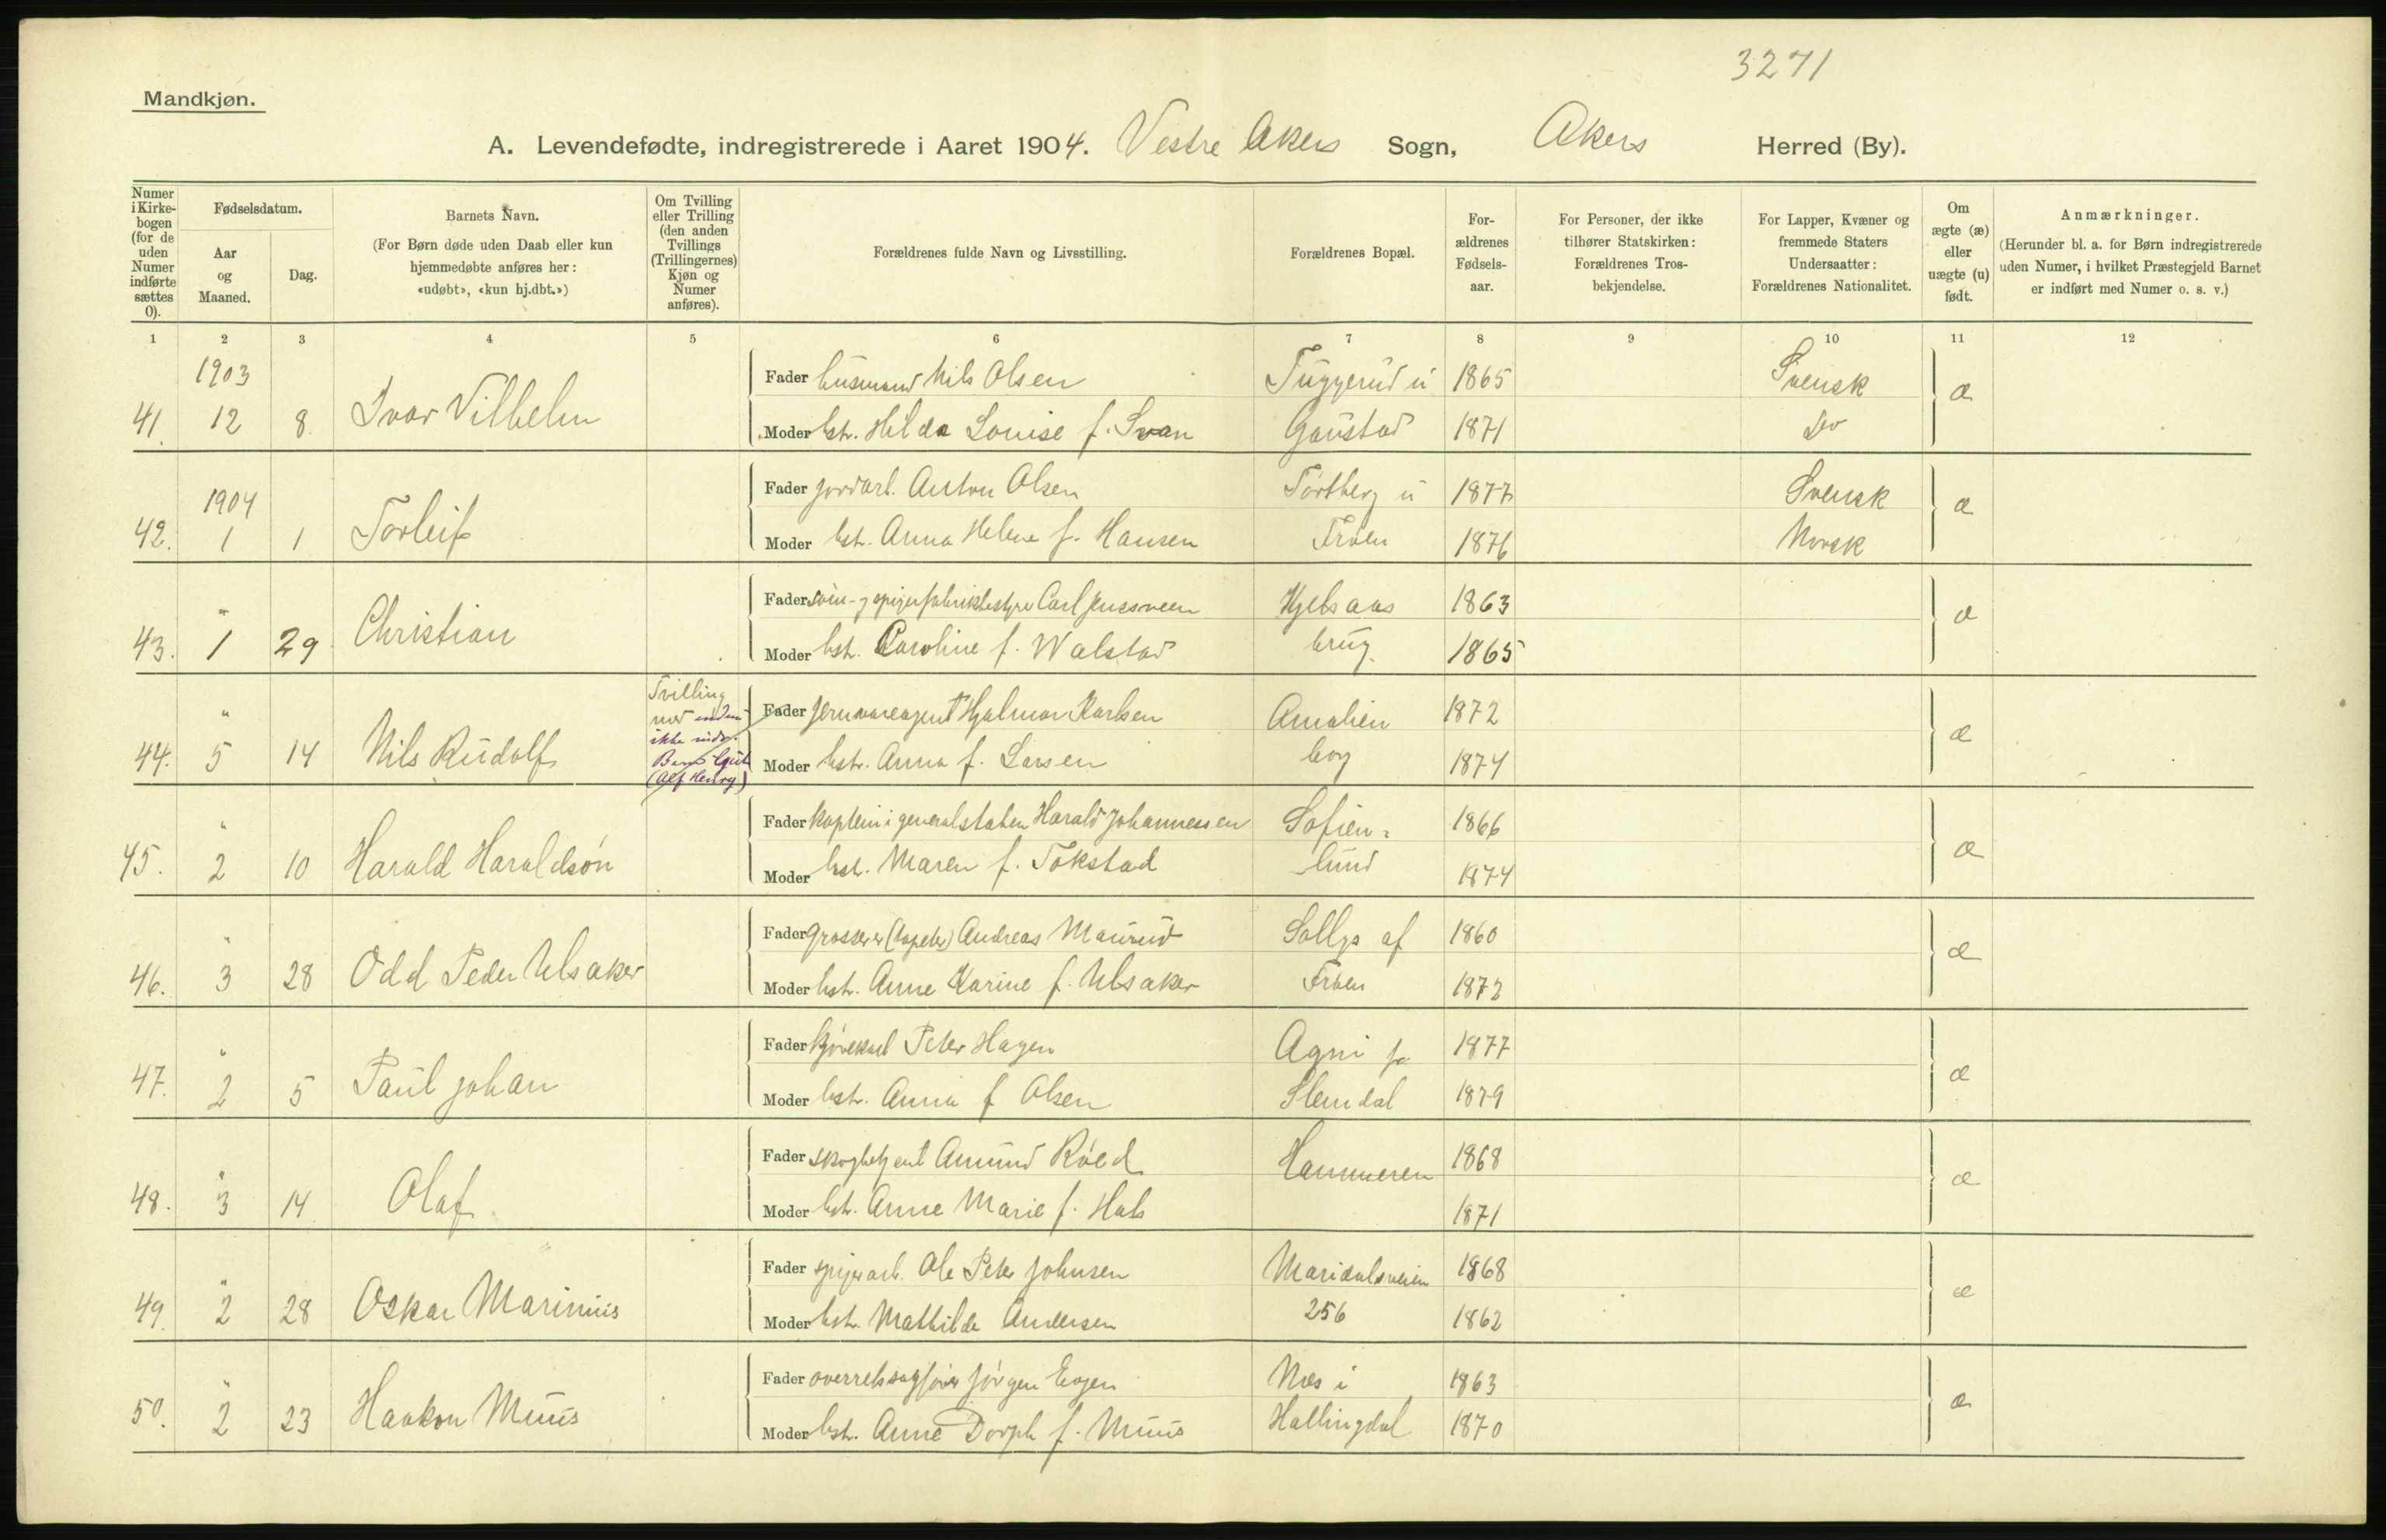 3271
Mandkjøn.
A. Levendefødte, indregistrerede i Aaret 1904. Vestre Akers Sogn, Akers Herred (By).
Numer i Kirke-bogen (for de uden Numer indførte sættes 0).
Fødselsdatum.
Aar og Maaned.
Dag.
Barnets Navn.
(For Børn døde uden Daab eller kun hjemmedøbte anføres her: «udøbt», «kun hj.dbt.»)
Om Tvilling eller Trilling (den anden Tvillings (Trillingernes) Kjøn og Numer anføres).
Forældrenes fulde Navn og Livsstilling.
Forældrenes Bopæl.
For-ældrenes Fødsels-aar.
For Personer, der ikke tilhører Statskirken: Forældrenes Tros-bekjendelse.
For Lapper, Kvæner og fremmede Staters Undersaatter: Forældrenes Nationalitet.
Om ægte (æ) eller uægte (u) født.
Anmærkninger.
(Herunder bl. a. for Børn indregistrerede uden Numer, i hvilket Præstegjeld Barnet er indført med Numer o. s. v.)
1 2 3 4 5 6 7 8 9 10 11 12
1903
Fader husmand Nils Olsen Tuggerud u 1865 Svensk
41. 12 8 Ivar Vilhelm æ
Moder hstr. Hilda Louise f. Svan Gaustad 1871 Do
1904
Fader jordarb. Anton Olsen Tørtberg u 1877 Svensk
42. 1 1 Torleif æ
Moder hstr. Anna Helene f. Hansen Frøen 1876 Norsk
Fader Carl Kjelsaas 1863
43. " 1 29 Christian æ
Moder hstr. Caroline f. Walstad brug. 1865
Tvilling
Fader jernvareagent Hjalmar Karlsen Amalien 1872
med
ikke
44. " 5 14 Nils Rudolf æ
(Alf Henry)
Moder hstr. Anna f. Larsen borg 1874
Fader kaptein i generalstaben Harald Johannessen Sofien- 1866
45. " 2 10 Harald Haraldsøn æ
Moder hstr. Maren f. Tokstad lund 1874
Fader grosserer (tapeter) Andreas Maurud Sollys af 1860
46. " 3 28 Odd Peder Ulsaker æ
Moder hstr. Anne Karine f. Ulsaker Frøen 1872
Fader kjørekarl Peter Hagen Agni pr 1877
47. " 2 5 Paul Johan æ
Moder hstr. Anna f Olsen Slemdal 1879
Fader skogbetjent Amund Røed Hammeren 1868
48. " 3 14 Olaf æ
Moder hstr. Anne Marie f. Hals 1871
Fader spigerarb. Ole Peter Johnsen Maridalsveien 1868
49. " 2 28 Oskar Marinius æ
Moder hstr. Mathilde Andersen 256 1862
Fader overretssagfører Jørgen Evjen Næs i 1863
50. " 2 23 Haakon Muus æ
Moder hstr. Anne Dorph f. Muus Hallingdal 1870